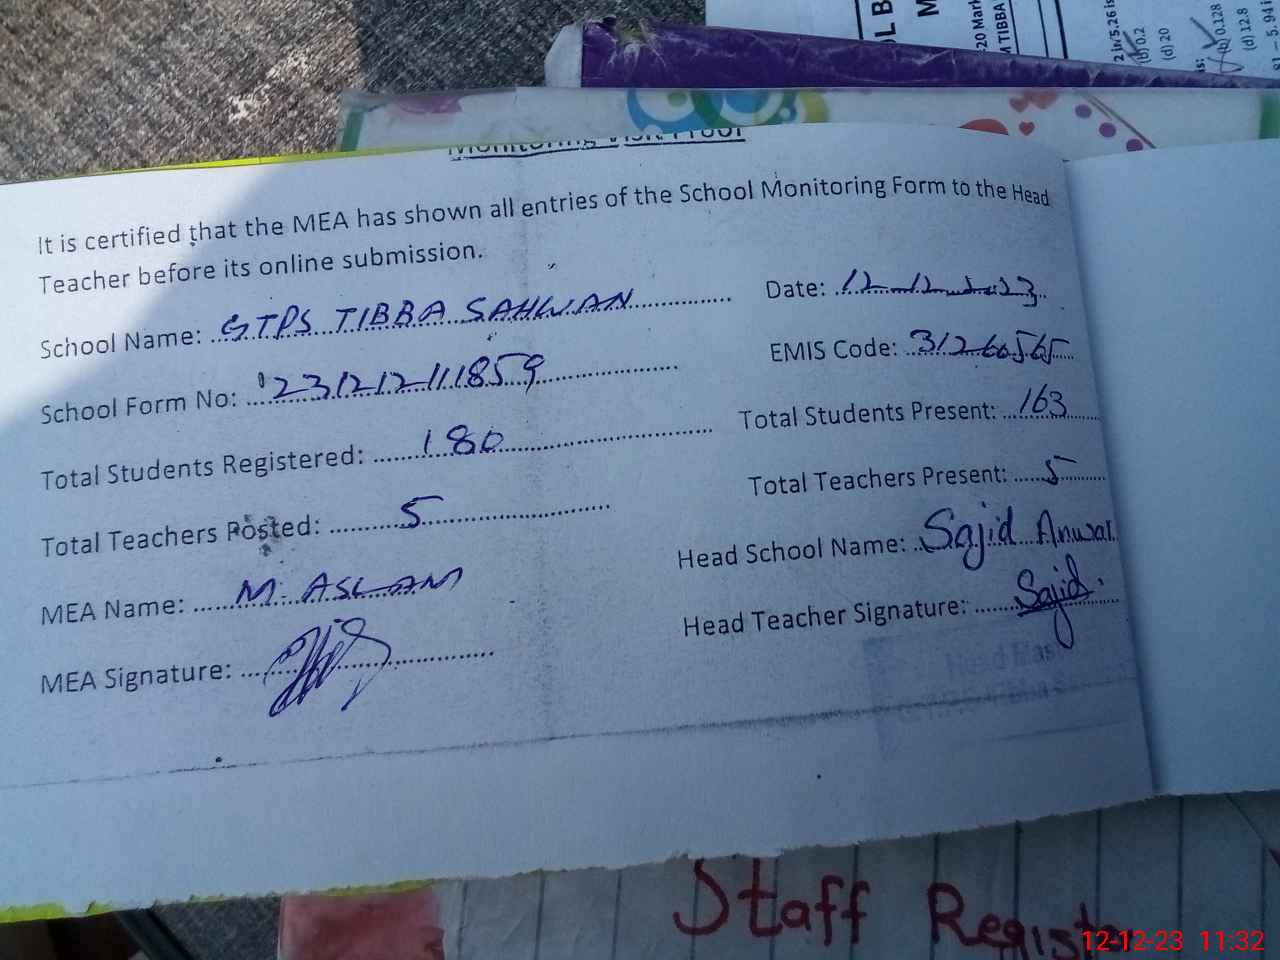 Monitoring Visit Proof
It is certified that the MEA has shown all entries of the School Monitoring Form to the Head
Teacher before its online submission.
School Name: GTPS TIBBA SAHWAN Date: 12-12-2023
School Form No: 231212111859 EMIS Code: 31260565
Total Students Registered: 180 Total Students Present: 163
Total Teachers Posted: 5 Total Teachers Present: 5
MEA Name: M. ASLAM Head School Name: Sajid Anwar
MEA Signature: Head Teacher Signature: Sajid.
Staff Registe
12-12-23 11:32
(b) 0.2
(d) 20
(b) 0.128
(d) 12.8